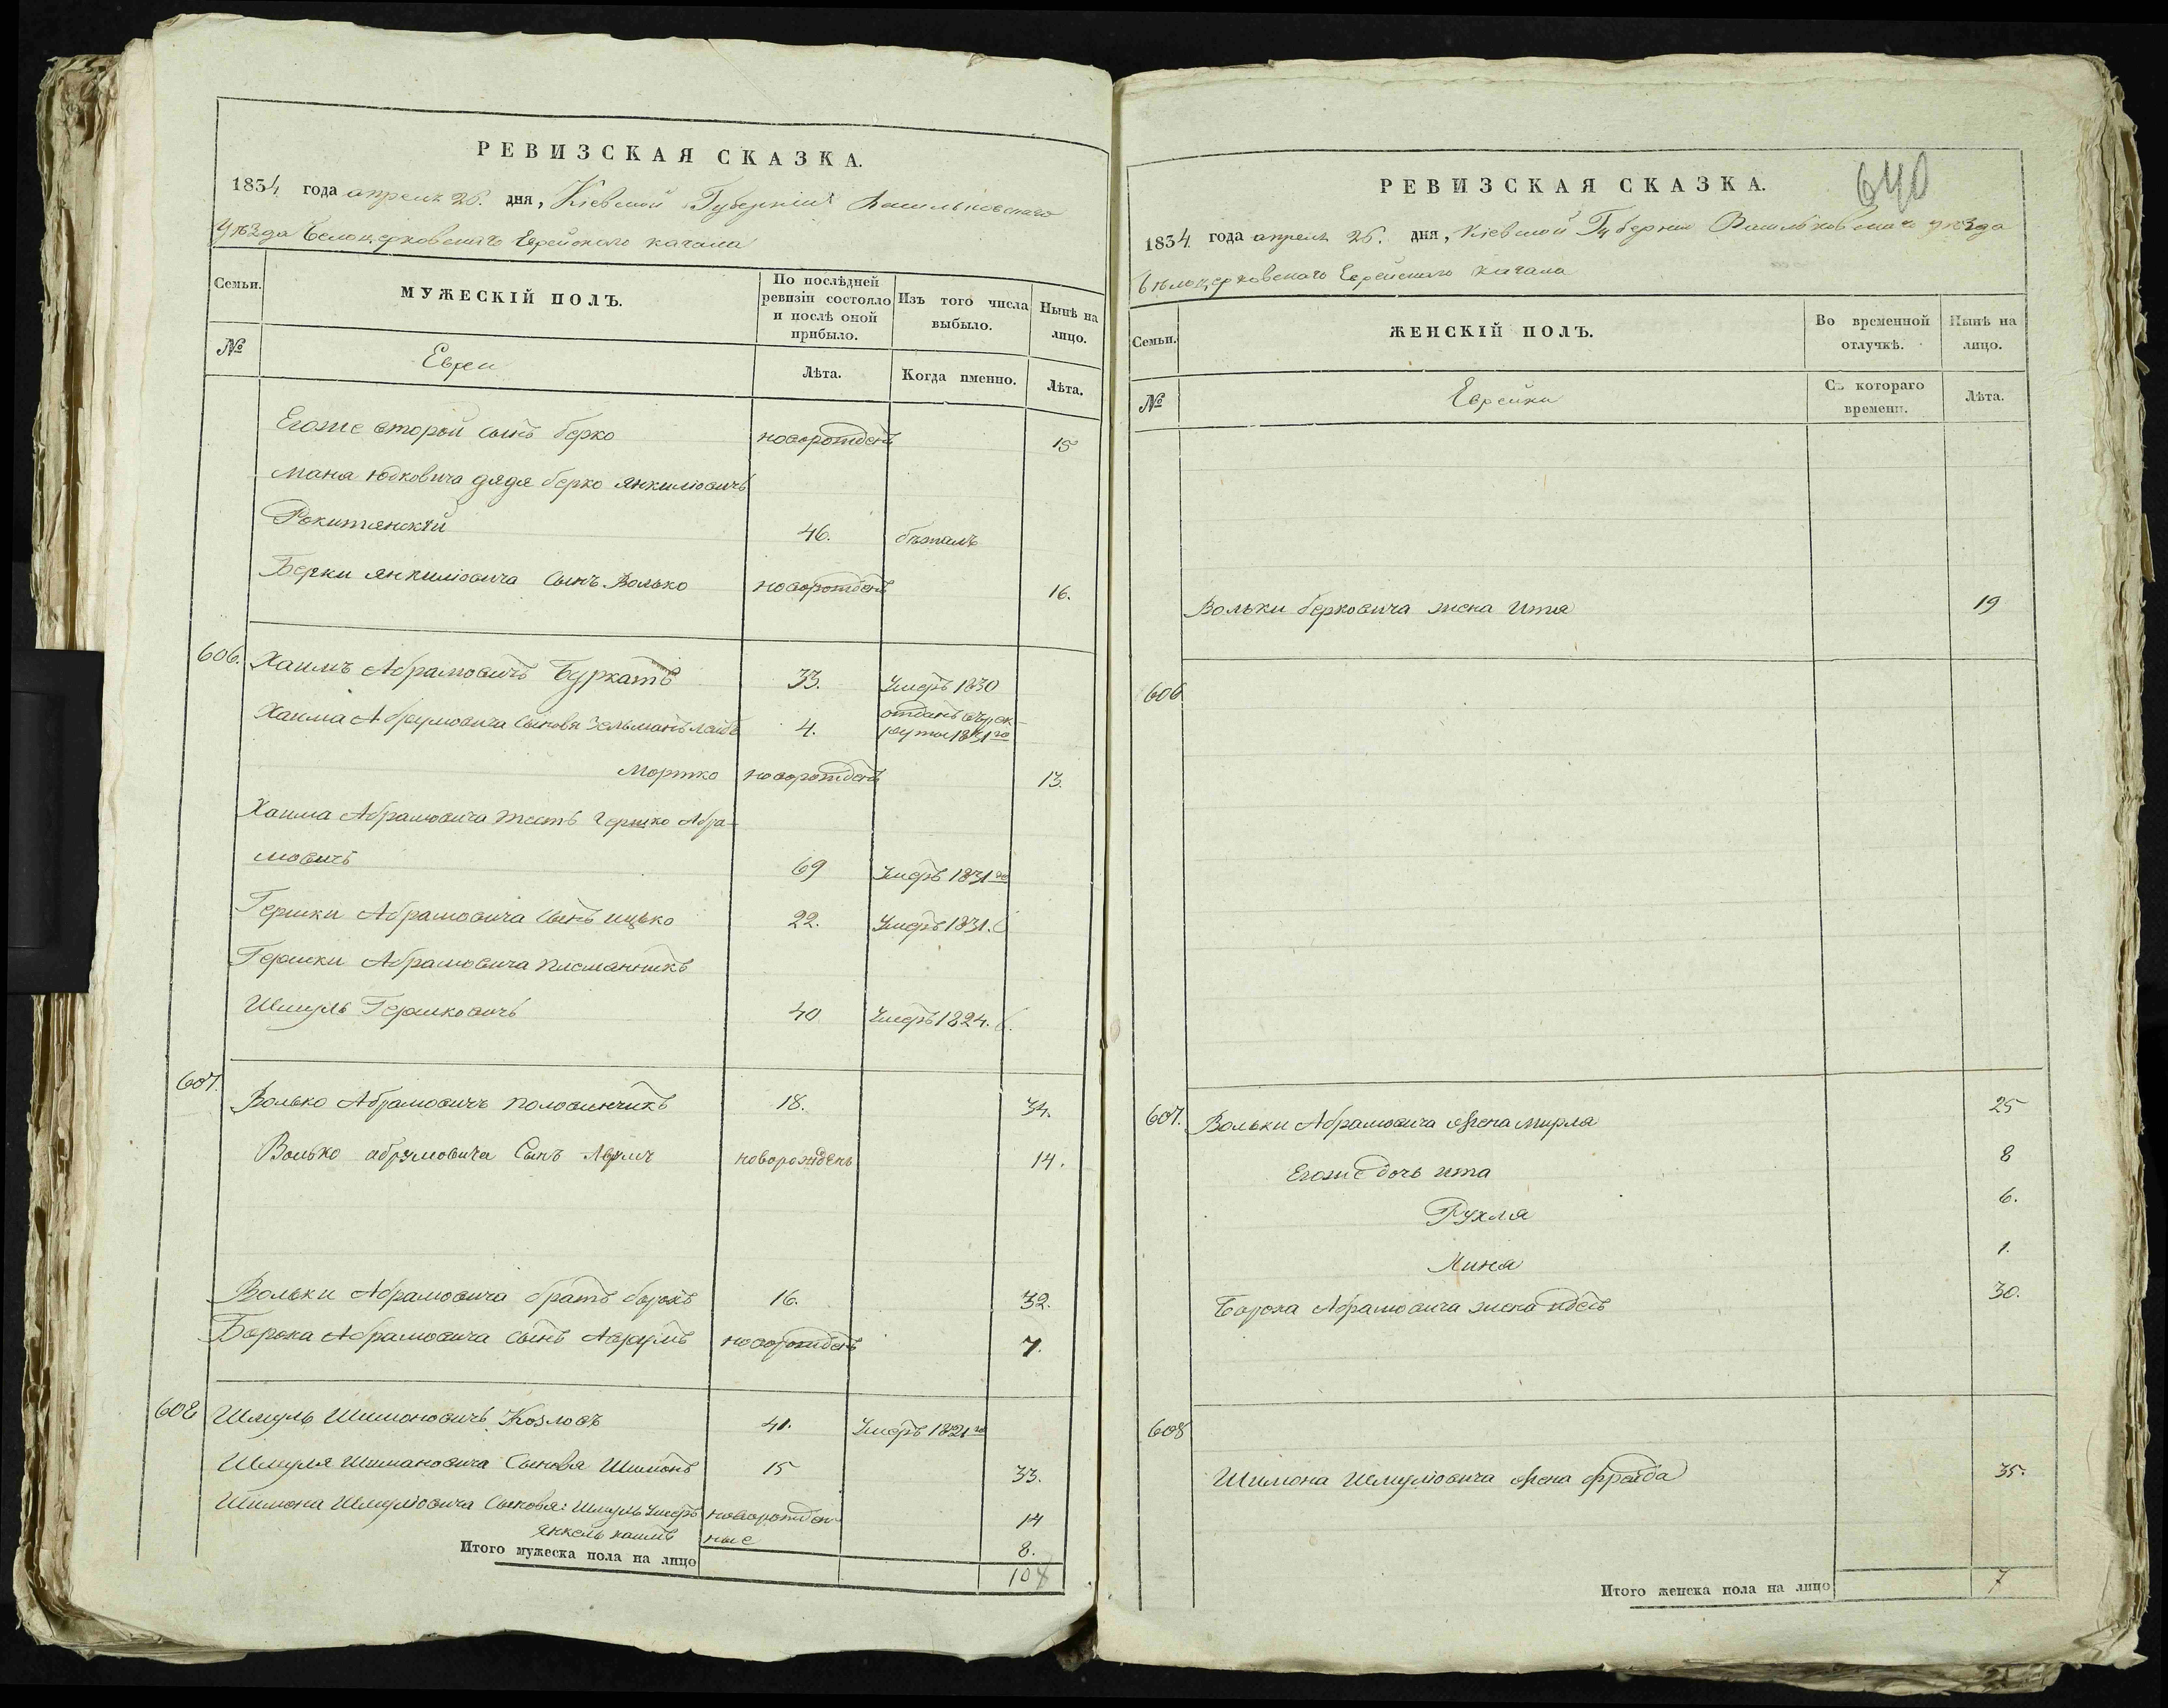 РЕВИЗСКАЯ СКАЗКА.
1834 года апреля 26. дня, Кіевской Губерніи Васильковскаго
уѣзда Белоцерковскаго Еврейскаго кагала
Семьи.
МУЖЕСКІЙ ПОЛЪ.
По послѣдней ревизіи состояло и послѣ оной прибыло.
Изъ того числа выбыло.
Нынѣ на лицо.
№
Евреи
Лѣта.
Когда именно.
Лѣта.
Егоже второй сынъ берко новорожденъ 15
Мана Юдковича дядя берко янкиліовичъ
Рокитянскій 46. бѣжалъ
Берки янкиліовича Сынъ Волько новорожденъ 16.
606. Хаимъ Абрамовичъ Буркатъ 33. Умеръ 1830
Хаима Абрумовича Сыновя Зельманъ Лейбъ 4. отданъ въ рек-
руты 1831го
Мортко новорожденъ 13.
Хаима Абрамовича тесть Гершко Абра-
мовичъ 69 Умеръ 1831го
Гершки Абрамовича Сынъ ицько 22. Умеръ 1831.
Гершки Абрамовича племянникъ
Шмуль Гершковичъ 40 Умеръ 1824.
607. Волько Абрамовичъ половинчикъ 18. 34.
Волько абрумовича Сынъ новорожденъ 14.
Вольки Абрамовича братъ борохъ 16. 32.
Бороха Абрамовича Сынъ Аврумъ новорожденъ 7.
608 Шмуль Шимоновичъ Козловъ 41. Умеръ 1821го
Шмуля Шимановича Сыновя Шимонъ 15 33.
Шимона Шмуліовича Сыновя: Шмуль Умеръ новорожден- 14
янкель хаимъ ные 8.
Итого мужеска пола на лицо 10
РЕВИЗСКАЯ СКАЗКА.
640
1834 года апреля 26. дня, Кіевской Губерніи Васильковскаго уѣзда
Бѣлоцерковскаго Еврейскаго кагала
Семьи.
ЖЕНСКІЙ ПОЛЪ.
Во временной отлучкѣ.
Нынѣ на лицо.
№
Еврейки
Съ котораго времени.
Лѣта.
Вольки берковича жена Итя 19
606
607. Вольки Абрамовича жена Мирля 25
Егоже дочь ита 8
Рухля 6.
1.
Бороха Абрамовича жена 30.
608
Шимона Шмуліовича жена фрейда 35.
Итого женска пола на лицо 7